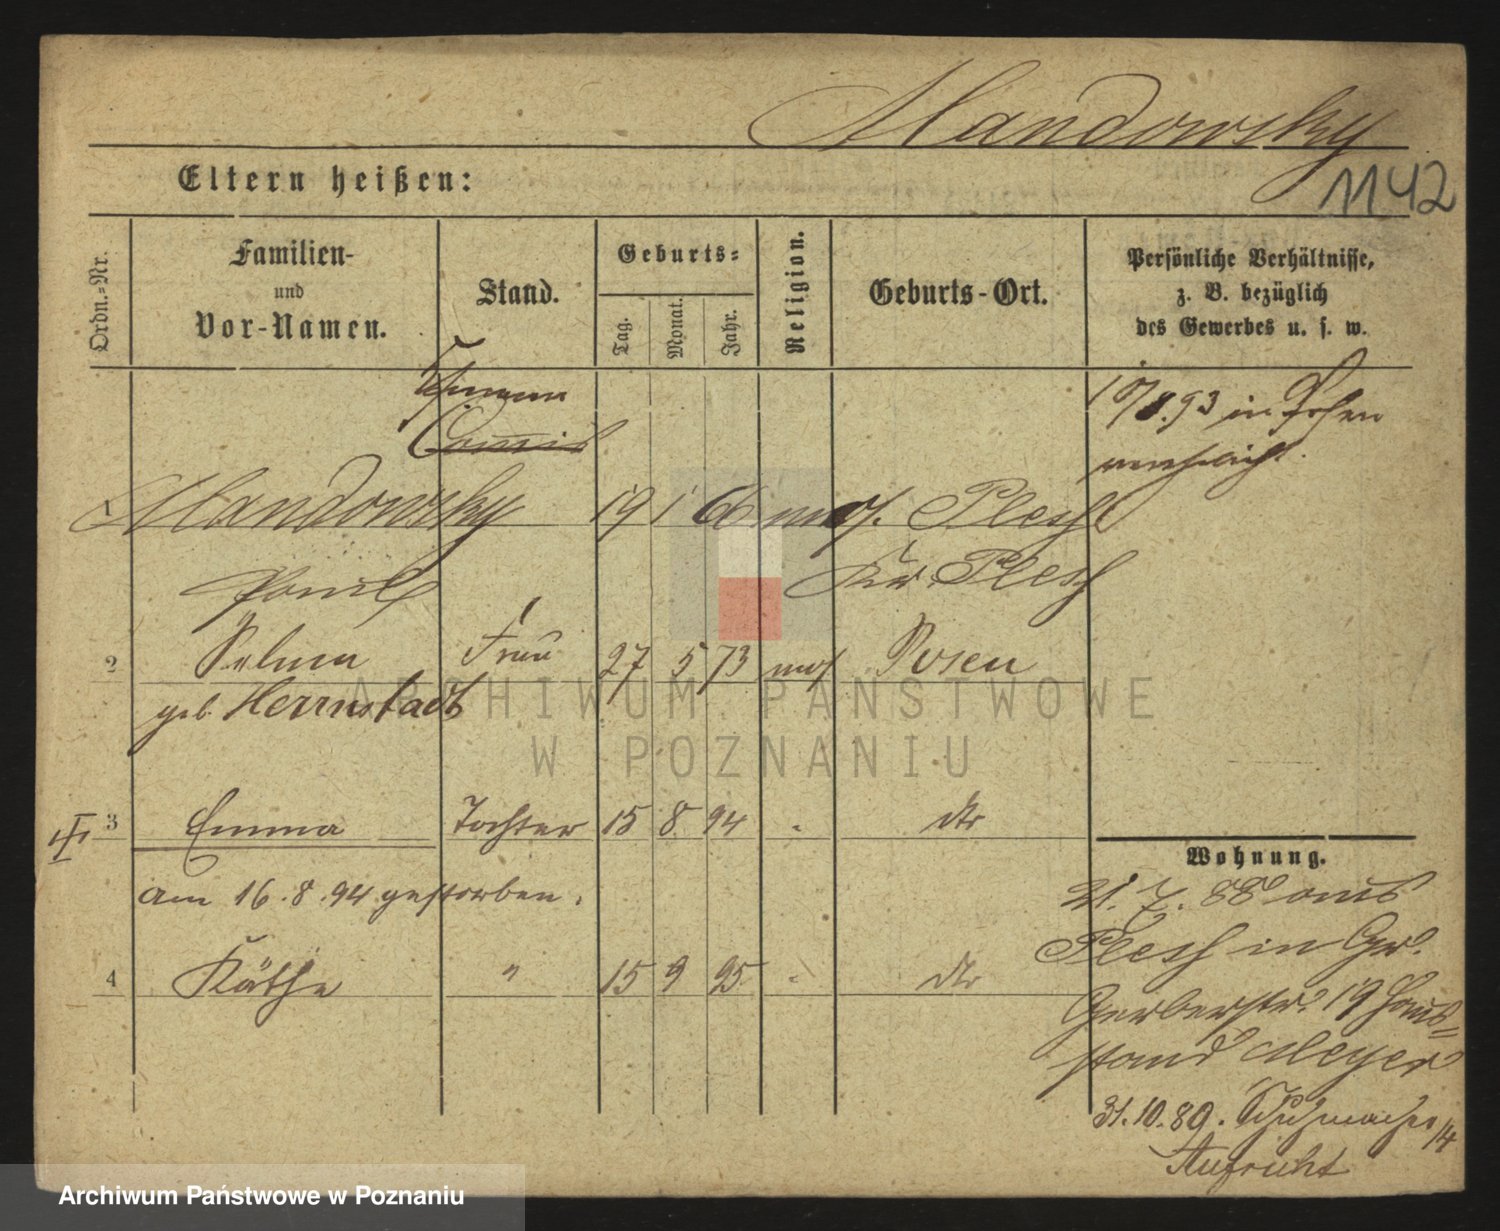 Mandowsky
1142
Eltern heißen:
Ordn.-Nr.
Familien-
und
Vor-Namen.
Stand.
Geburts-
Tag.
Monat.
Jahr.
Religion.
Geburts-Ort.
Persönliche Verhältnisse,
z. B. bezüglich
des Gewerbes u. s. w.
Commis
10/8.93 in Posen
1 Mandowsky 19 1 66 mos. Plesch
Kr. Plesch
2 Selma Frau 27 5 73 mos Posen
geb. Herrnstadt
3 Emma Tochter 15 8 94 dto
am 16.8.94 gestorben.
4 Käthe " 15 9 95 dto
Wohnung.
21.7.88 aus
Plesch in Gr.
Gerberstr. 19 Haus-
stand Meyer
31.10.89. Schuhmacherstr. 14
Aufricht
ARCHIWUM PAŃSTWOWE
W POZNANIU
Archiwum Państwowe w Poznaniu